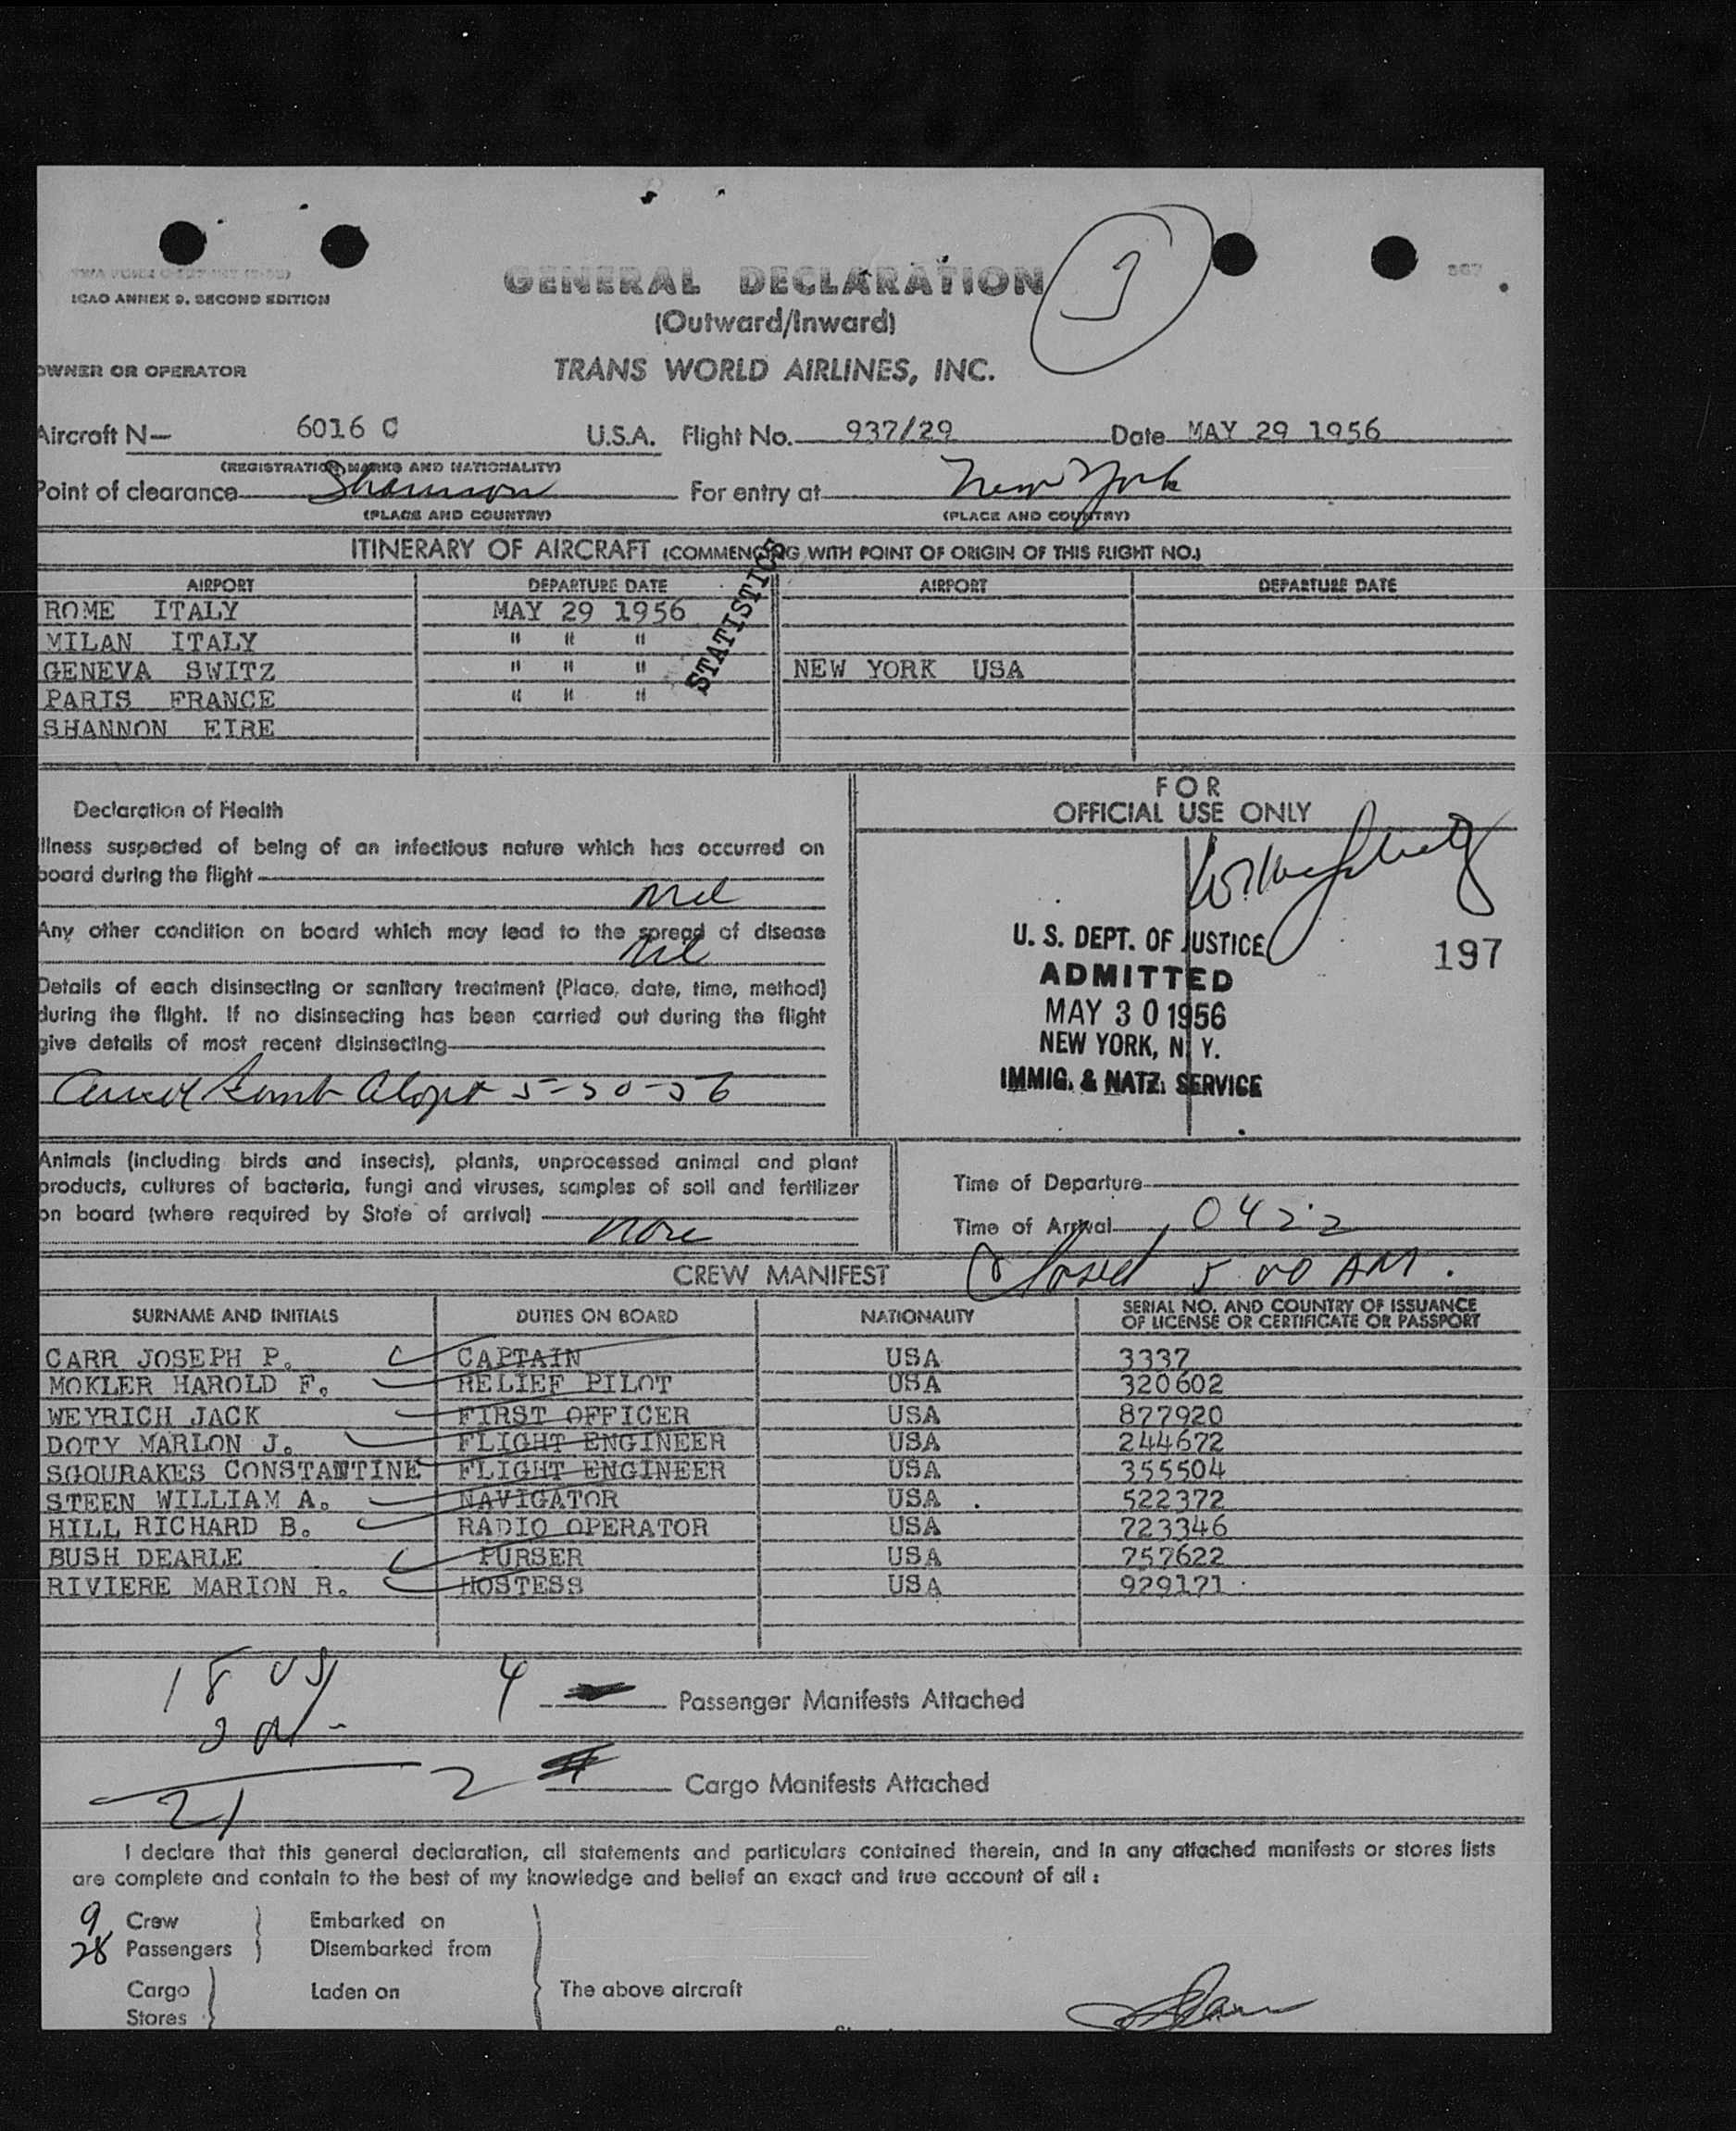 ICAO ANNEX 9, SECOND EDITION
GENERAL DECLARATION
(Outward/Inward)
OWNER OR OPERATOR
TRANS WORLD AIRLINES, INC.
Aircraft N— 6016 C U.S.A. Flight No. 937/29 Date MAY 29 1956
(REGISTRATION MARKS AND NATIONALITY)
Point of clearance Shannon For entry at New York
(PLACE AND COUNTRY) (PLACE AND COUNTRY)
ITINERARY OF AIRCRAFT (COMMENCING WITH POINT OF ORIGIN OF THIS FLIGHT NO.)
STATISTICS
AIRPORT DEPARTURE DATE AIRPORT DEPARTURE DATE
ROME ITALY MAY 29 1956
MILAN ITALY " " "
GENEVA SWITZ " " " NEW YORK USA
PARIS FRANCE " " "
SHANNON EIRE
Declaration of Health
Illness suspected of being of an infectious nature which has occurred on
board during the flight
nil
Any other condition on board which may lead to the spread of disease
nil
Details of each disinsecting or sanitary treatment (Place, date, time, method)
during the flight. If no disinsecting has been carried out during the flight
give details of most recent disinsecting
5-30-56
FOR
OFFICIAL USE ONLY
U. S. DEPT. OF JUSTICE
197
ADMITTED
MAY 30 1956
NEW YORK, N. Y.
IMMIG. & NATZ. SERVICE
Animals (including birds and insects), plants, unprocessed animal and plant
products, cultures of bacteria, fungi and viruses, samples of soil and fertilizer
on board (where required by State of arrival)
none
Time of Departure
Time of Arrival 0422
Closed 5 00 AM.
CREW MANIFEST
SURNAME AND INITIALS DUTIES ON BOARD NATIONALITY SERIAL NO. AND COUNTRY OF ISSUANCE
OF LICENSE OR CERTIFICATE OR PASSPORT
CARR JOSEPH P. CAPTAIN USA 3337
MOKLER HAROLD F. RELIEF PILOT USA 320602
WEYRICH JACK FIRST OFFICER USA 877920
DOTY MARLON J. FLIGHT ENGINEER USA 244672
SGOURAKES CONSTANTINE FLIGHT ENGINEER USA 355504
STEEN WILLIAM A. NAVIGATOR USA 522372
HILL RICHARD B. RADIO OPERATOR USA 723346
BUSH DEARLE PURSER USA 757622
RIVIERE MARION R. HOSTESS USA 929171
18 US
4 Passenger Manifests Attached
2 Cargo Manifests Attached
21
I declare that this general declaration, all statements and particulars contained therein, and in any attached manifests or stores lists
are complete and contain to the best of my knowledge and belief an exact and true account of all :
9 Crew Embarked on
28 Passengers Disembarked from
Cargo Laden on The above aircraft
Stores